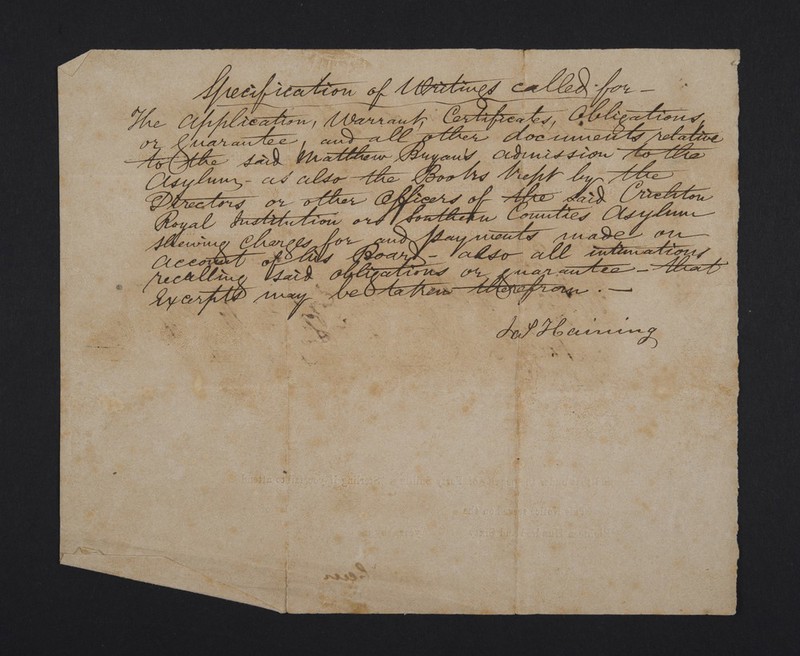 Specification of Writings called for —
The Application, Warrant, Certificates, Obligations,
or Guarantee, and all other documents relative
to the said Matthew Bryan's admission to the
Asylum, as also the Books kept by the
Directors or other Officers of the said Crichton
Royal Institution or Southern Counties Asylum
shewing charges for and payments made on
account of his Board — also all intimations
recalling said obligations or guarantee — that
Excerpts may be taken therefrom. —
Haining